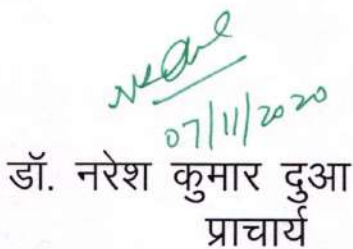 07/11/2020
डॉ. नरेश कुमार दुआ
प्राचार्य